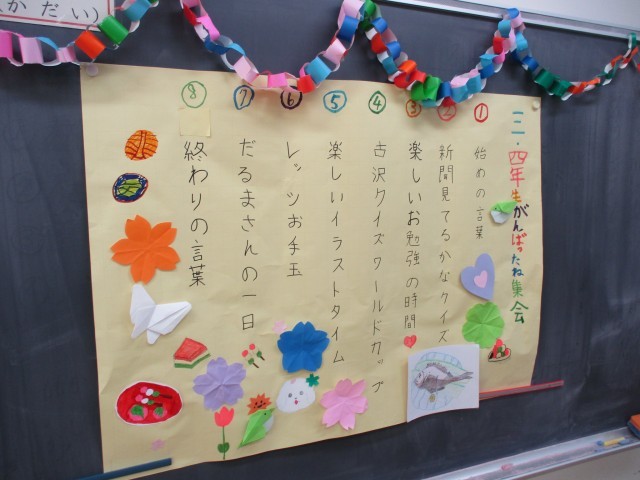 (かだい)
三・四年もがんばったね集会
① 始めの言葉
② 新聞見てるかなクイズ
③ 楽しいお勉強の時間
④ 古沢クイズワールドカップ
⑤ 楽しいイラストタイム
⑥ レッツお手玉
⑦ だるまさんの一日
⑧ 終わりの言葉